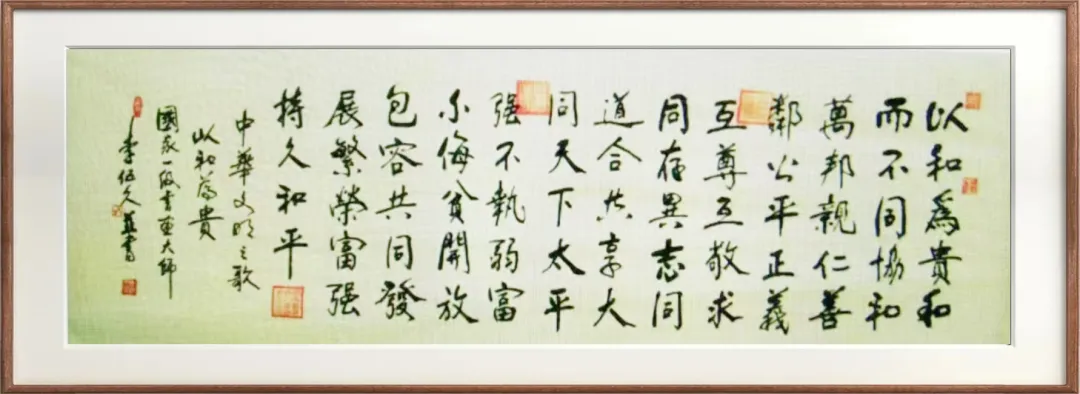 以和為貴和
而不同協和
萬邦親仁善
鄰公平正義
互尊互敬求
同存異志同
道合共享大
同天下太平
强不執弱富
不侮貧開放
包容共同發
展繁榮富强
持久和平
中華文明之歌
以和為貴
國家一級書畫大師
李伍久並書